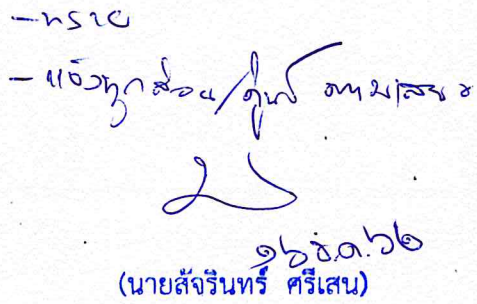 - ทราบ
- แจ้งทุกส่วน/ศูนย์ ตามเสนอ
๑๖ ธ.ค. ๖๒
(นายสัจรินทร์ ศรีเสน)